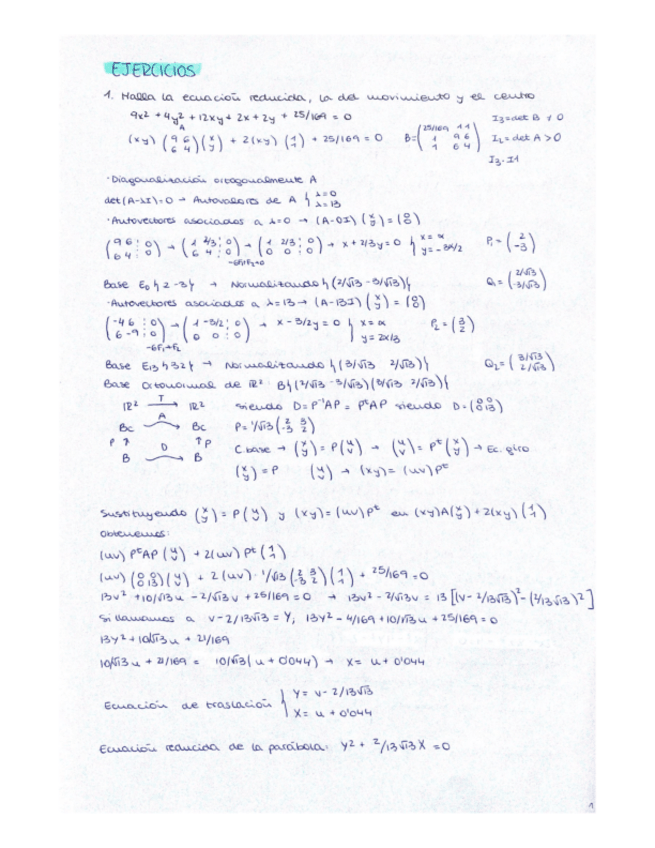 EJERCICIOS
1. Halla la ecuación reducida, la del movimiento y el centro
9x² + 4y² + 12xy + 2x + 2y + 25/169 = 0
(xy) (9 6 / 6 4) (x / y) + 2(xy) (1 / 1) + 25/169 = 0   B = (25/169 1 1 / 1 9 6 / 1 6 4)   I₃ = det B ≠ 0
A   I₂ = det A > 0
I₃ · I1
· Diagonalización ortogonalmente A
det(A-λI)=0 → Autovalores de A { λ=0 / λ=13
· Autovectores asociados a λ=0 → (A-0I) (x / y) = (0 / 0)
(9 6 : 0 / 6 4 : 0) → (1 2/3 : 0 / 6 4 : 0) → (1 2/3 : 0 / 0 0 : 0) → x + 2/3y = 0 { x = α / y = -3α/2   P₁ = (2 / -3)
Base E₀ { 2 -3 } → Normalizando { (2/√13 -3/√13) }   Q₁ = (2/√13 / -3/√13)
· Autovectores asociados a λ=13 → (A-13I) (x / y) = (0 / 0)
(-4 6 : 0 / 6 -9 : 0) → (1 -3/2 : 0 / 0 0 : 0) → x - 3/2y = 0 { x = α / y = 2α/3   P₂ = (3 / 2)
-6F₁+F₂
Base E₁₃ { 3 2 } → Normalizando { (3/√13 2/√13) }   Q₂ = (3/√13 / 2/√13)
Base Ortonormal de ℝ²: B { (2/√13 -3/√13) (3/√13 2/√13) }
ℝ² T → ℝ²   siendo D = P⁻¹AP = PᵗAP siendo D = (0 0 / 0 13)
Bc A → Bc   P = 1/√13 (2 3 / -3 2)
P ↑ ↑ P   C base → (x / y) = P (u / v) → (u / v) = Pᵗ (x / y) → Ec. giro
B D → B   (x / y) = P (u / v) → (xy) = (uv) Pᵗ
Sustituyendo (x / y) = P (u / v) y (xy) = (uv) Pᵗ en (xy) A (x / y) + 2(xy) (1 / 1)
Obtenemos:
(uv) PᵗAP (u / v) + 2(uv) Pᵗ (1 / 1)
(uv) (0 0 / 0 13) (u / v) + 2(uv) · 1/√13 (2 3 / -3 2) (1 / 1) + 25/169 = 0
13v² + 10/√13u - 2/√13v + 25/169 = 0 → 13v² - 2/√13v = 13 [(v - 2/13√13)² - (2/13√13)²]
Si llamamos a v - 2/13√13 = Y, 13Y² - 4/169 + 10/√13u + 25/169 = 0
13Y² + 10/√13u + 21/169
10/√13u + 21/169 = 10/√13 (u + 0'044) → X = u + 0'044
Ecuación de traslación { Y = v - 2/13√13
X = u + 0'044
Ecuación reducida de la parábola: Y² + 2/13√13 X = 0
1